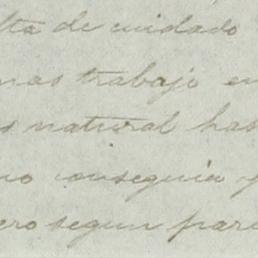 lta de cuidado
mas trabajo en
s natural has
no conseguia y
ero segun pare